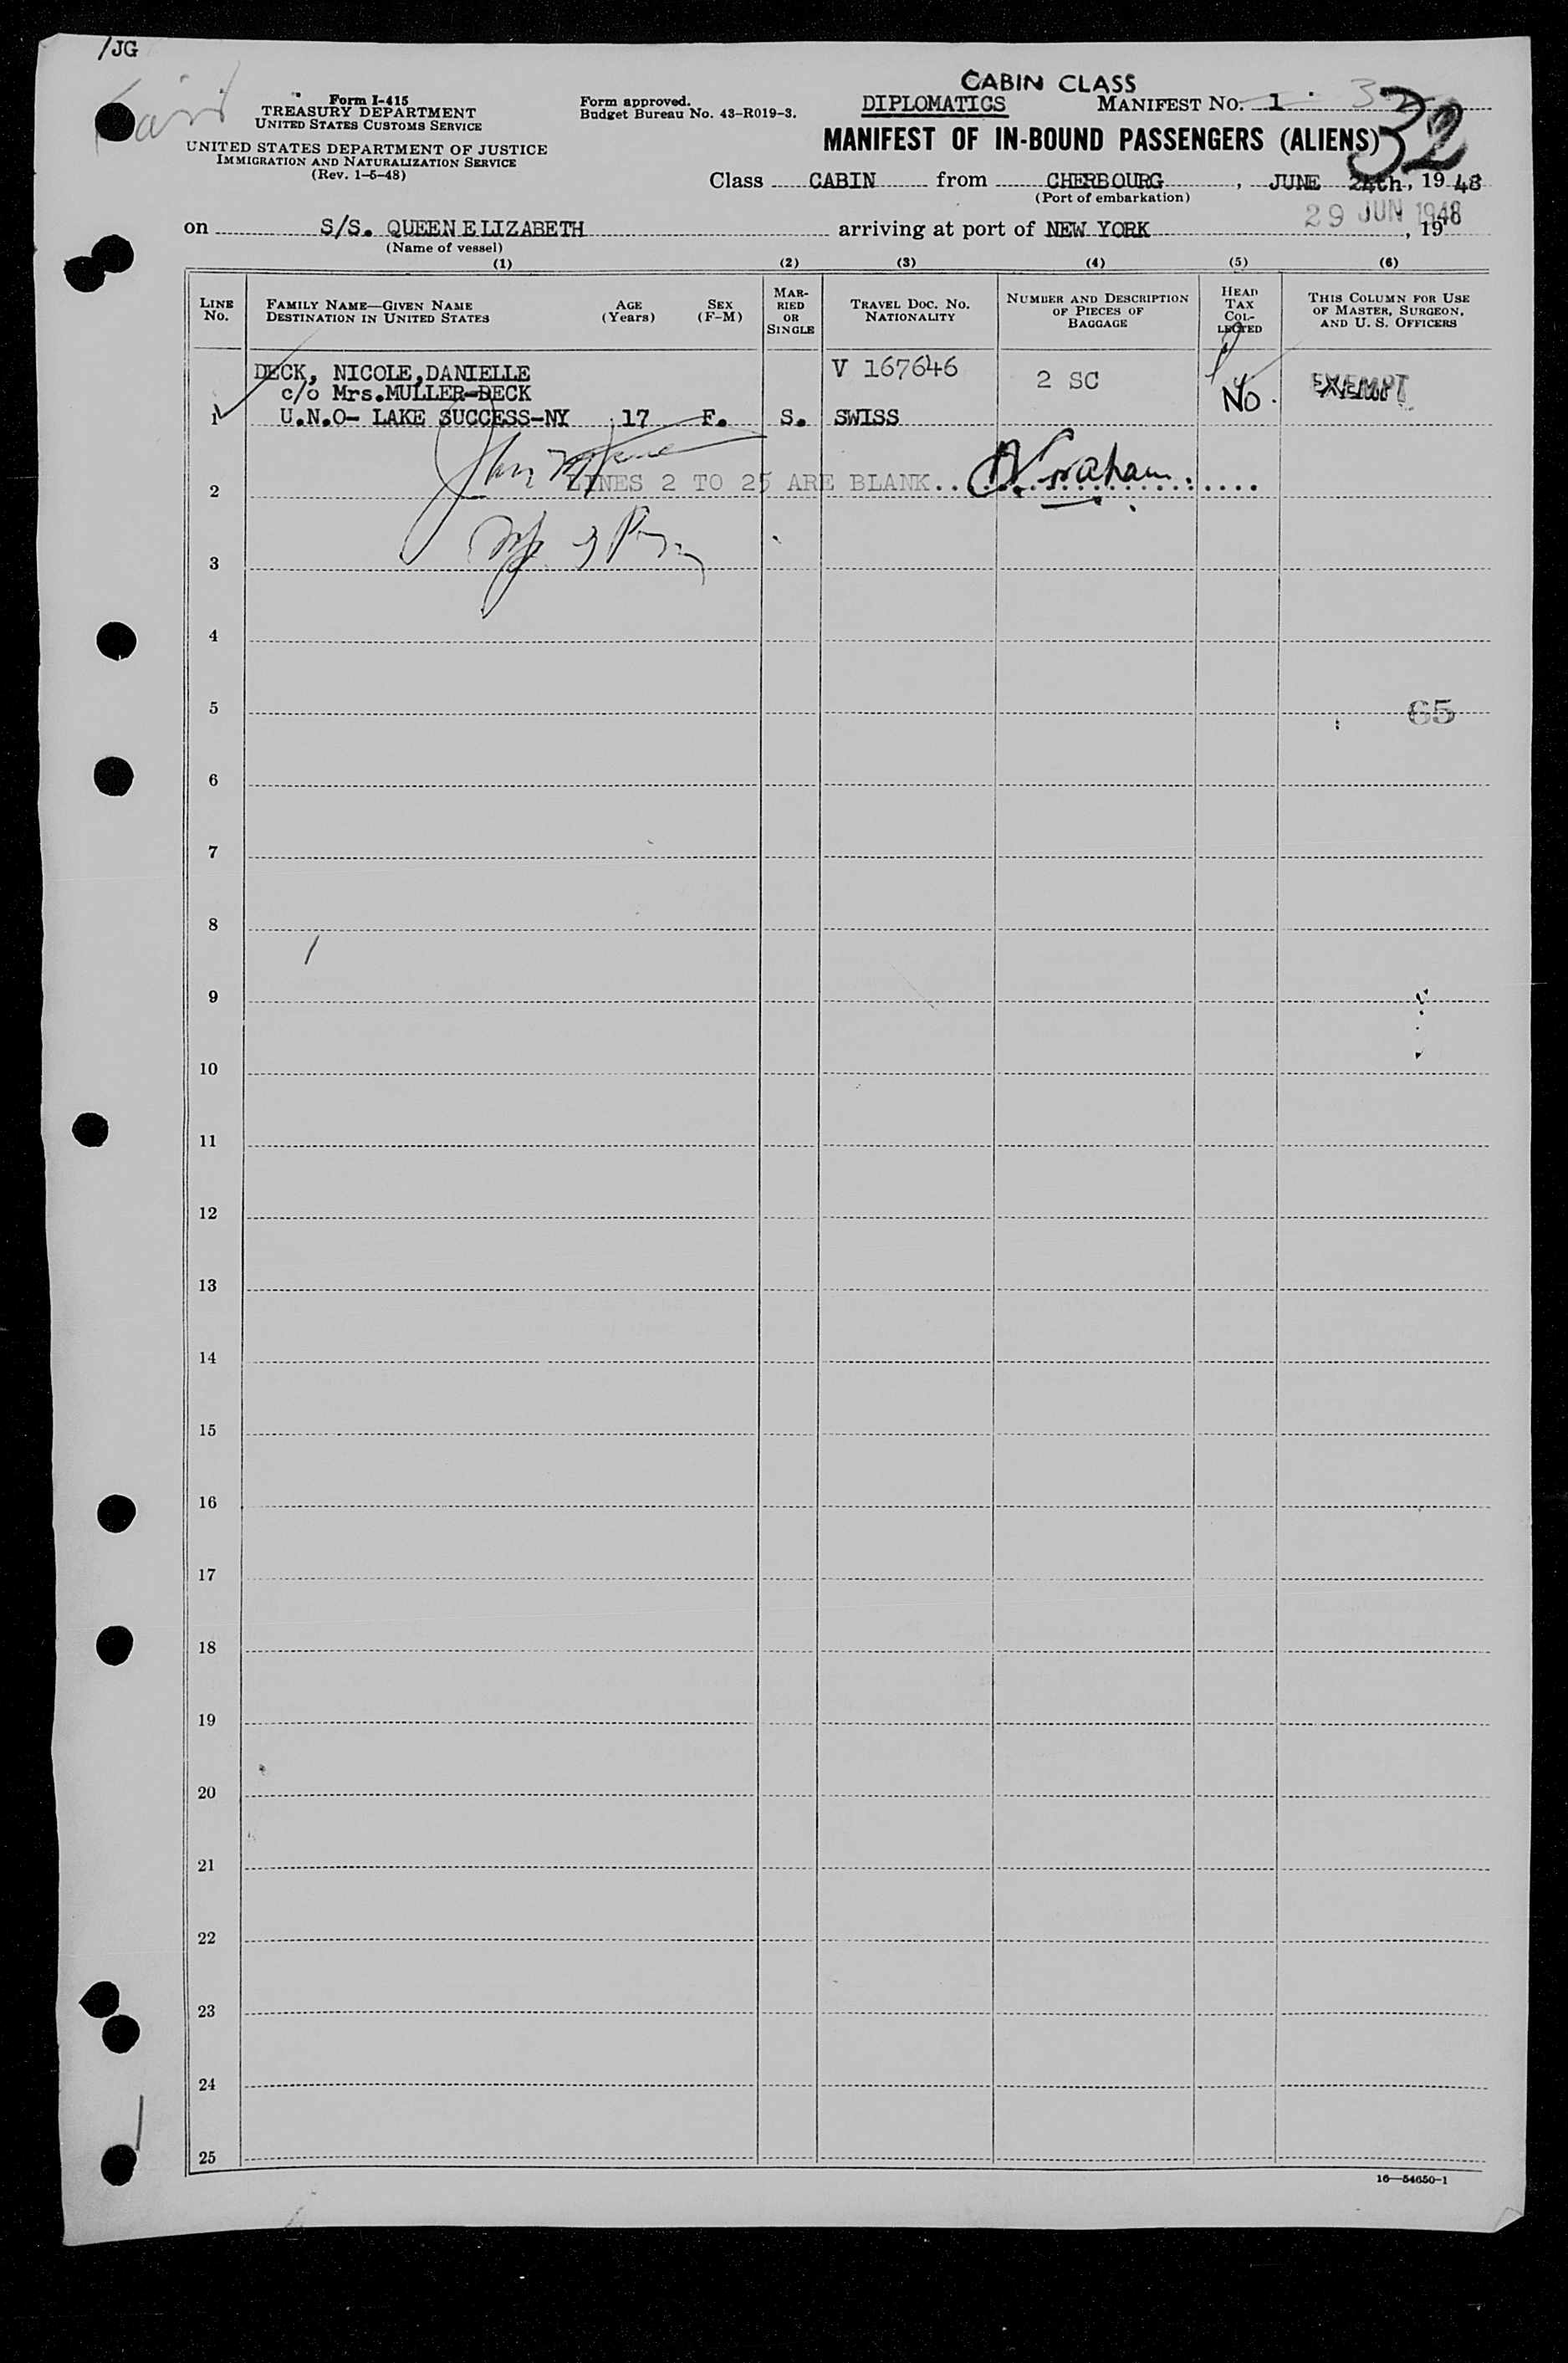 /JG
CABIN CLASS
Form I-415
TREASURY DEPARTMENT
UNITED STATES CUSTOMS SERVICE
UNITED STATES DEPARTMENT OF JUSTICE
IMMIGRATION AND NATURALIZATION SERVICE
(Rev. 1-5-48)
Form approved.
Budget Bureau No. 43-R019-3.
DIPLOMATICS MANIFEST NO. 1 32
32
MANIFEST OF IN-BOUND PASSENGERS (ALIENS)
Class CABIN from CHERBOURG, JUNE 24th, 1948
(Port of embarkation)
29 JUN 1948
on S/S. QUEEN ELIZABETH arriving at port of NEW YORK, 19
(Name of vessel)
(1) (2) (3) (4) (5) (6)
LINE NO. FAMILY NAME—GIVEN NAME DESTINATION IN UNITED STATES AGE (Years) SEX (F-M) MARRIED OR SINGLE TRAVEL DOC. NO. NATIONALITY NUMBER AND DESCRIPTION OF PIECES OF BAGGAGE HEAD TAX COLLECTED THIS COLUMN FOR USE OF MASTER, SURGEON, AND U. S. OFFICERS
DECK, NICOLE,DANIELLE V 167646 2 SC No. EXEMPT
c/o Mrs.MULLER-DECK
1 U.N.O- LAKE SUCCESS-NY 17 F. S. SWISS
2 LINES 2 TO 25 ARE BLANK
3
4
5 65
6
7
8
9
10
11
12
13
14
15
16
17
18
19
20
21
22
23
24
25
16—54650-1